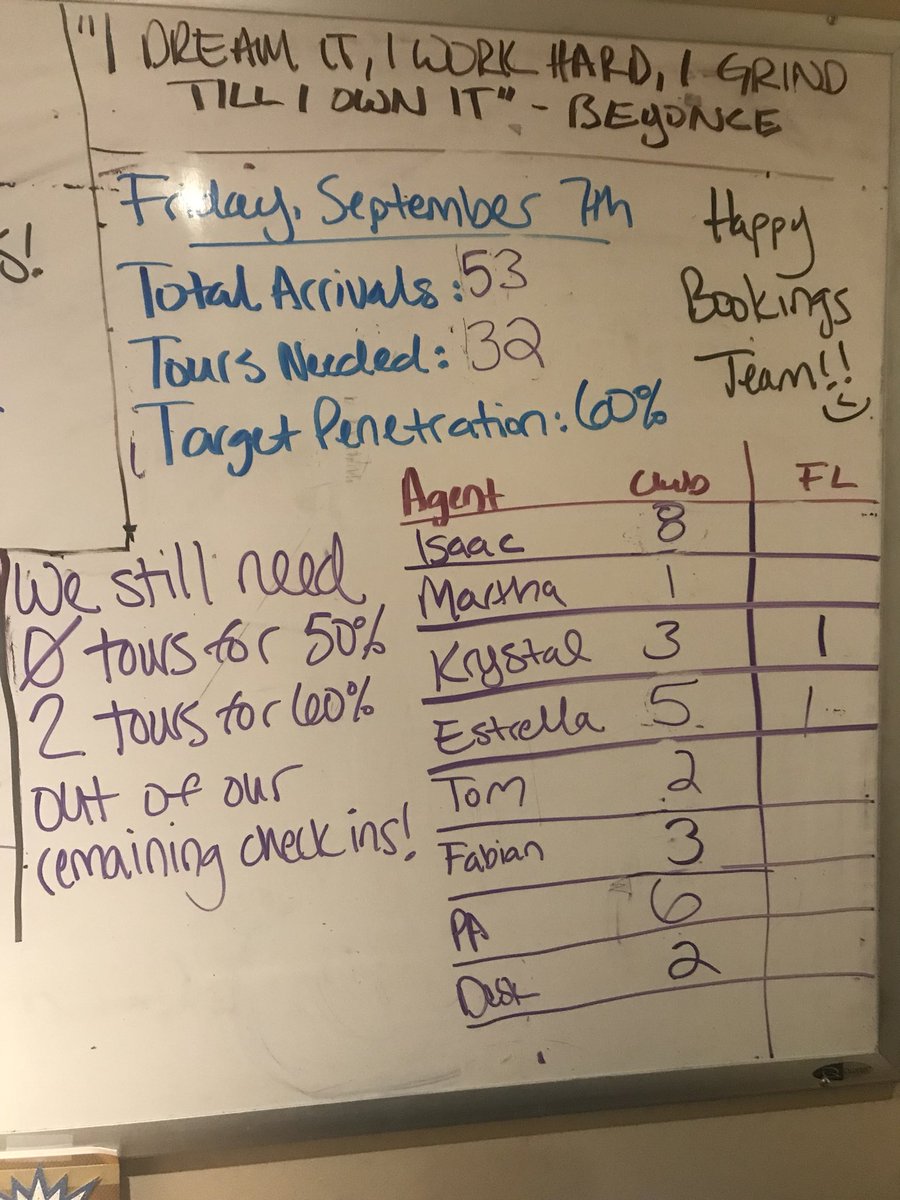 "I DREAM IT, I WORK HARD, I GRIND
TILL I OWN IT" - BEYONCE
S!
Friday, September 7th
Total Arrivals: 53
Tours Needed: 32
Target Penetration: 60%
Happy
Bookings
Team!!
We still need
0 tours for 50%
2 tours for 60%
out of our
remaining check ins!
Agent Club FL
Isaac 8
Martha 1
Krystal 3 1
Estrella 5 1
Tom 2
Fabian 3
PA 6
Desk 2